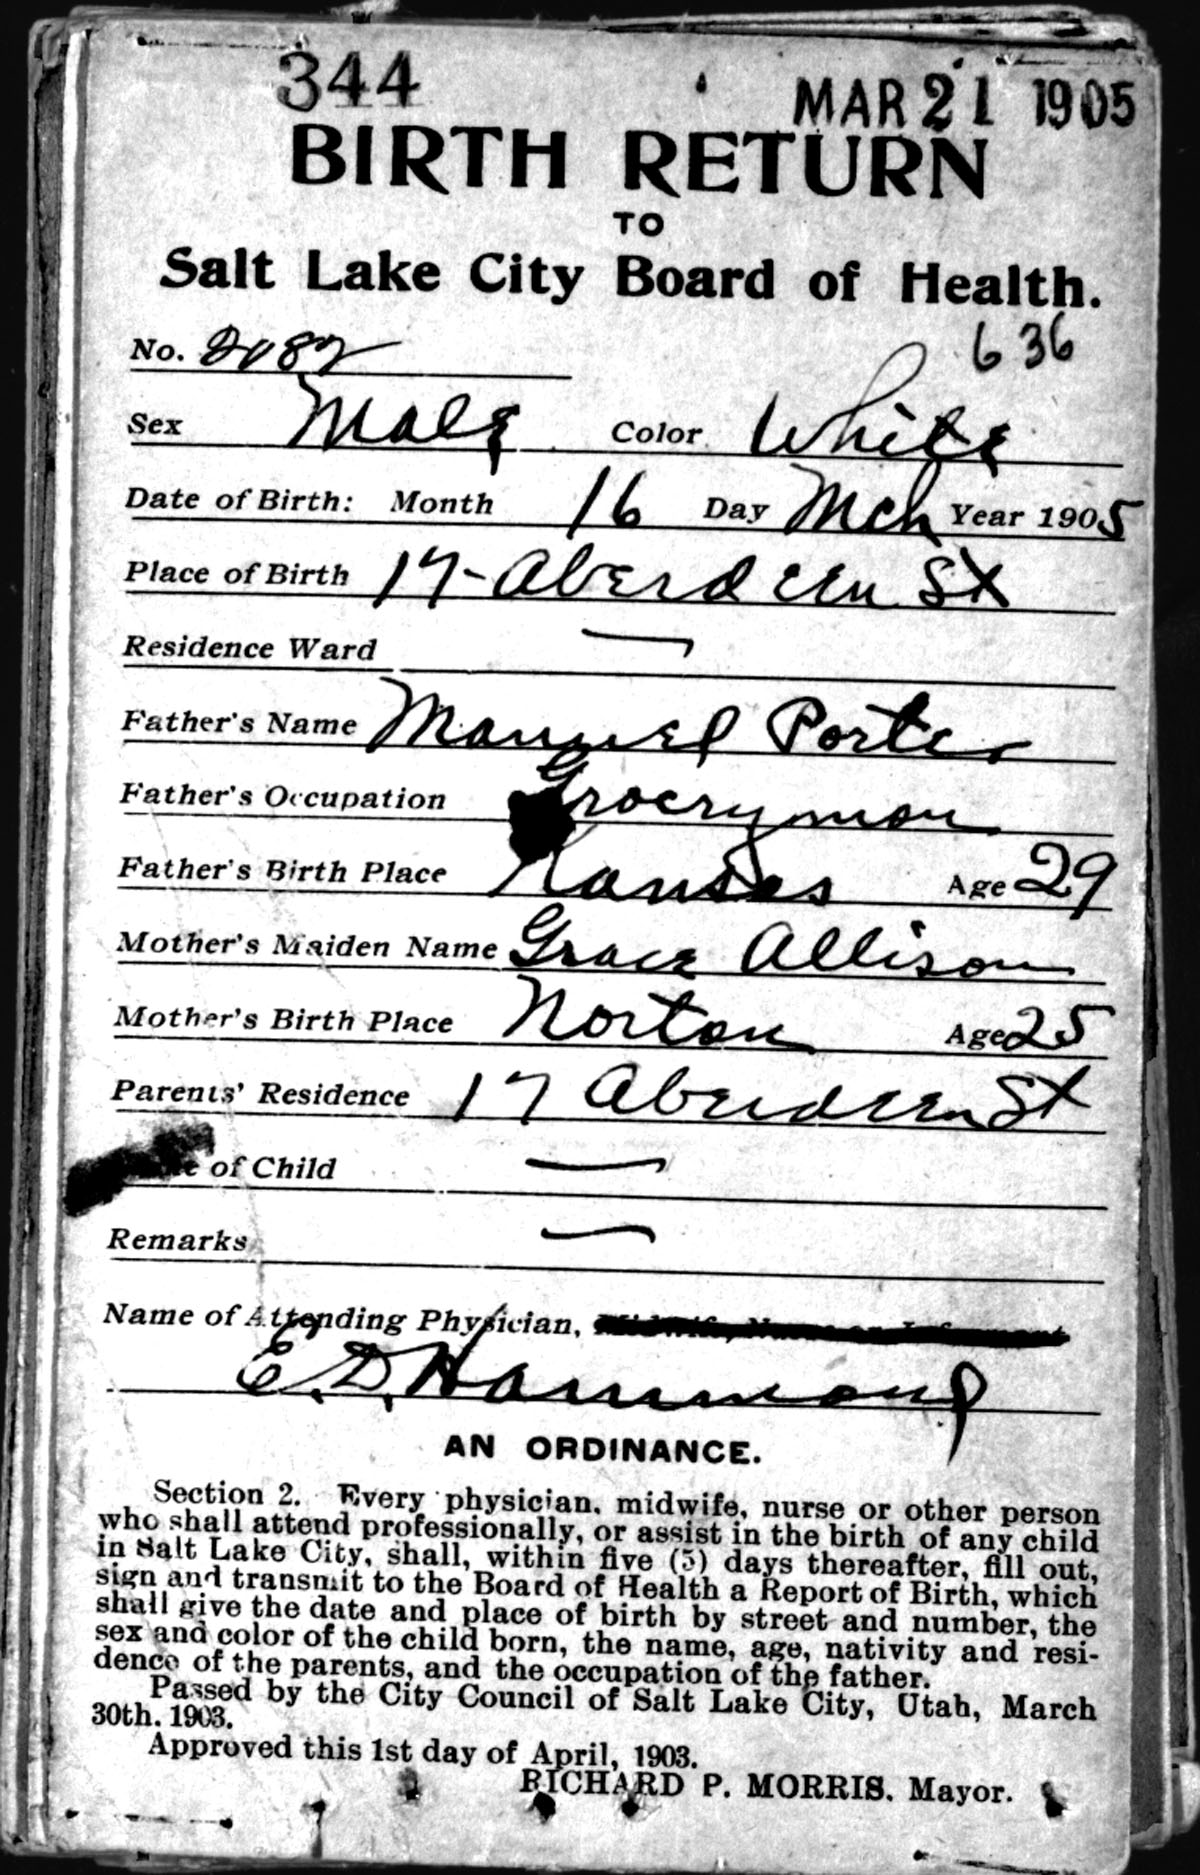 344 MAR 21 1905
BIRTH RETURN
TO
Salt Lake City Board of Health.
No. 2082 636
Sex Male Color White
Date of Birth: Month 16 Day Mch Year 1905
Place of Birth 17- Aberdeen St
Residence Ward —
Father's Name Manuel Porter
Father's Occupation Grocryman
Father's Birth Place Kansas Age 29
Mother's Maiden Name Grace Allison
Mother's Birth Place Norton Age 25
Parents' Residence 17 Aberdeen St
of Child —
Remarks —
Name of Attending Physician, Midwife, Nurse or Informant
E. D. Hammond
AN ORDINANCE.
Section 2. Every physician, midwife, nurse or other person
who shall attend professionally, or assist in the birth of any child
in Salt Lake City, shall, within five (5) days thereafter, fill out,
sign and transmit to the Board of Health a Report of Birth, which
shall give the date and place of birth by street and number, the
sex and color of the child born, the name, age, nativity and resi-
dence of the parents, and the occupation of the father.
Passed by the City Council of Salt Lake City, Utah, March
30th. 1903.
Approved this 1st day of April, 1903.
RICHARD P. MORRIS. Mayor.